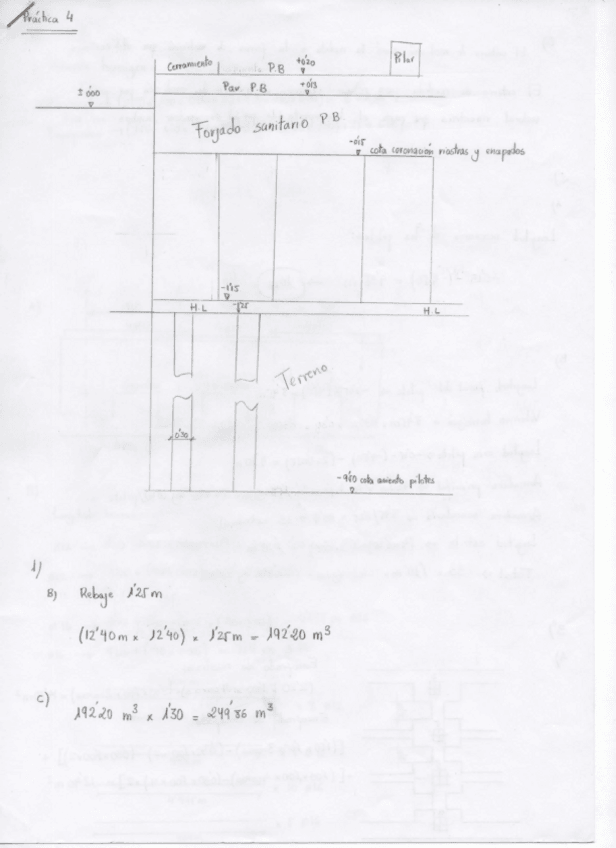 Práctica 4
Cerramiento P.B +0'20 Pilar
± 0'00 Pav. P.B +0'13
Forjado sanitario P.B
-0'15 cota coronación riostras y encepados
-1'15
H.L -1'25 H.L
Terreno
0'30
-9'60 cota asiento pilotes
1)
B) Rebaje 1'25 m
(12'40 m x 12'40) x 1'25 m = 192'20 m³
c)
192'20 m³ x 1'30 = 249'86 m³